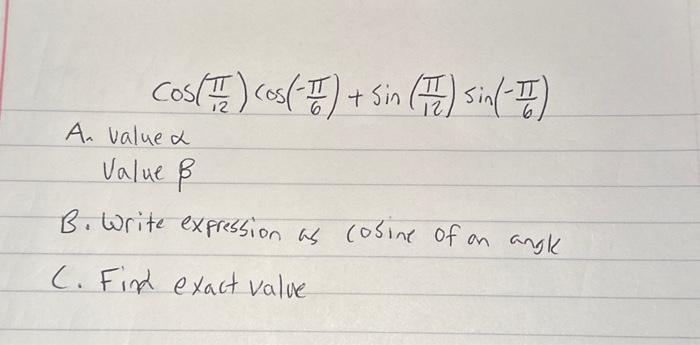 Cos(π/12) cos(-π/6) + sin(π/12) sin(-π/6)
A. value α
Value β
B. Write expression as cosine of an angle
C. Find exact value